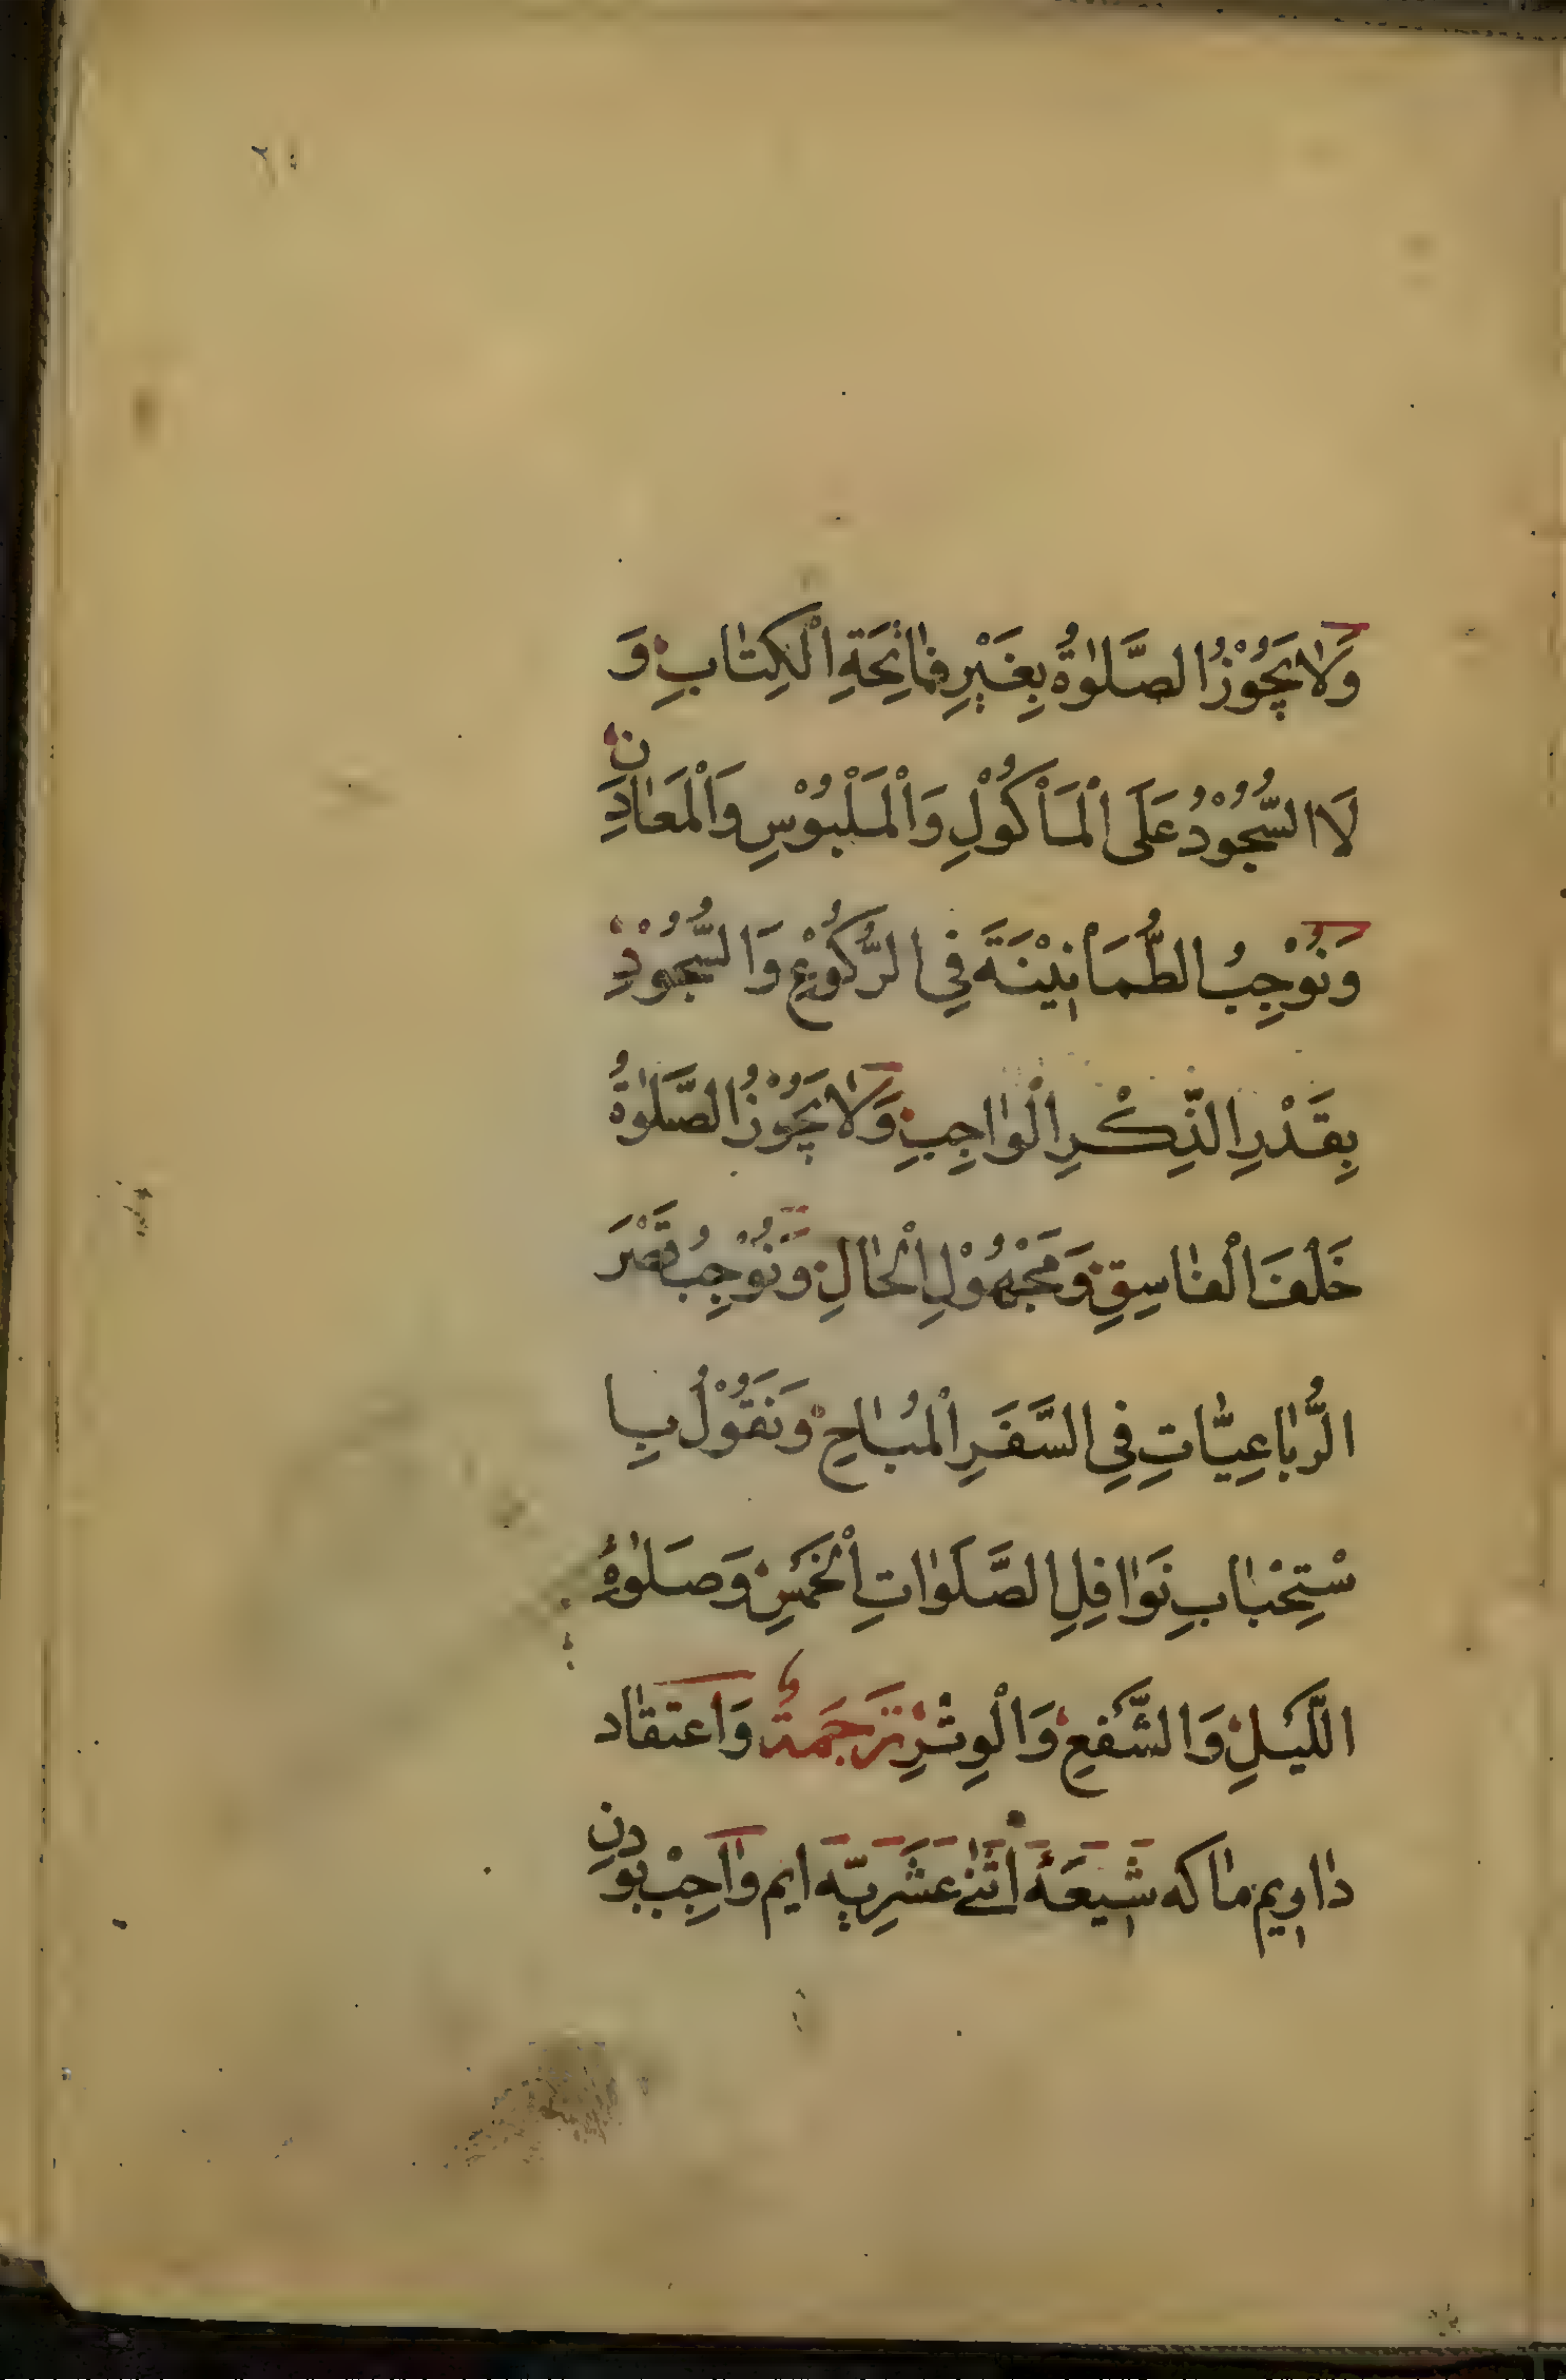 وَلَا یَجُوْزُ الصَّلٰوةُ بِغَیْرِ فٰاتِحَةِ الْكِتٰابِ وَ
لَا السُّجُوْدُ عَلَى الْمَأْكُوْلِ وَالْمَلْبُوْسِ وَالْمَعٰادِنِ
وَنُوْجِبُ الطُّمَأنِیْنَةَ فِي الرُّكُوْعِ وَالسُّجُوْدِ
بِقَدْرِ الذِّكْرِ الْوٰاجِبِ وَلَا یَجُوْزُ الصَّلٰوةُ
خَلْفَ الْفٰاسِقِ وَمَجْهُوْلِ الْحٰالِ وَنُوْجِبُ قَصْرَ
الرُّبٰاعِیّٰاتِ فِي السَّفَرِ الْمُبٰاحِ وَنَقُوْلُ بِا
سْتِحْبٰابِ نَوٰافِلِ الصَّلَوٰاتِ الْخَمْسِ وَصَلٰوةُ
اللَّیْلِ وَالشَّفْعِ وَالْوِتْرِ تَرجَمَةُ وَاعتقٰاد
دٰاریم مٰا كه شیعَهٔ اثْنٰے عَشَرِیّه ایم وٰاجِبْ بودنِ